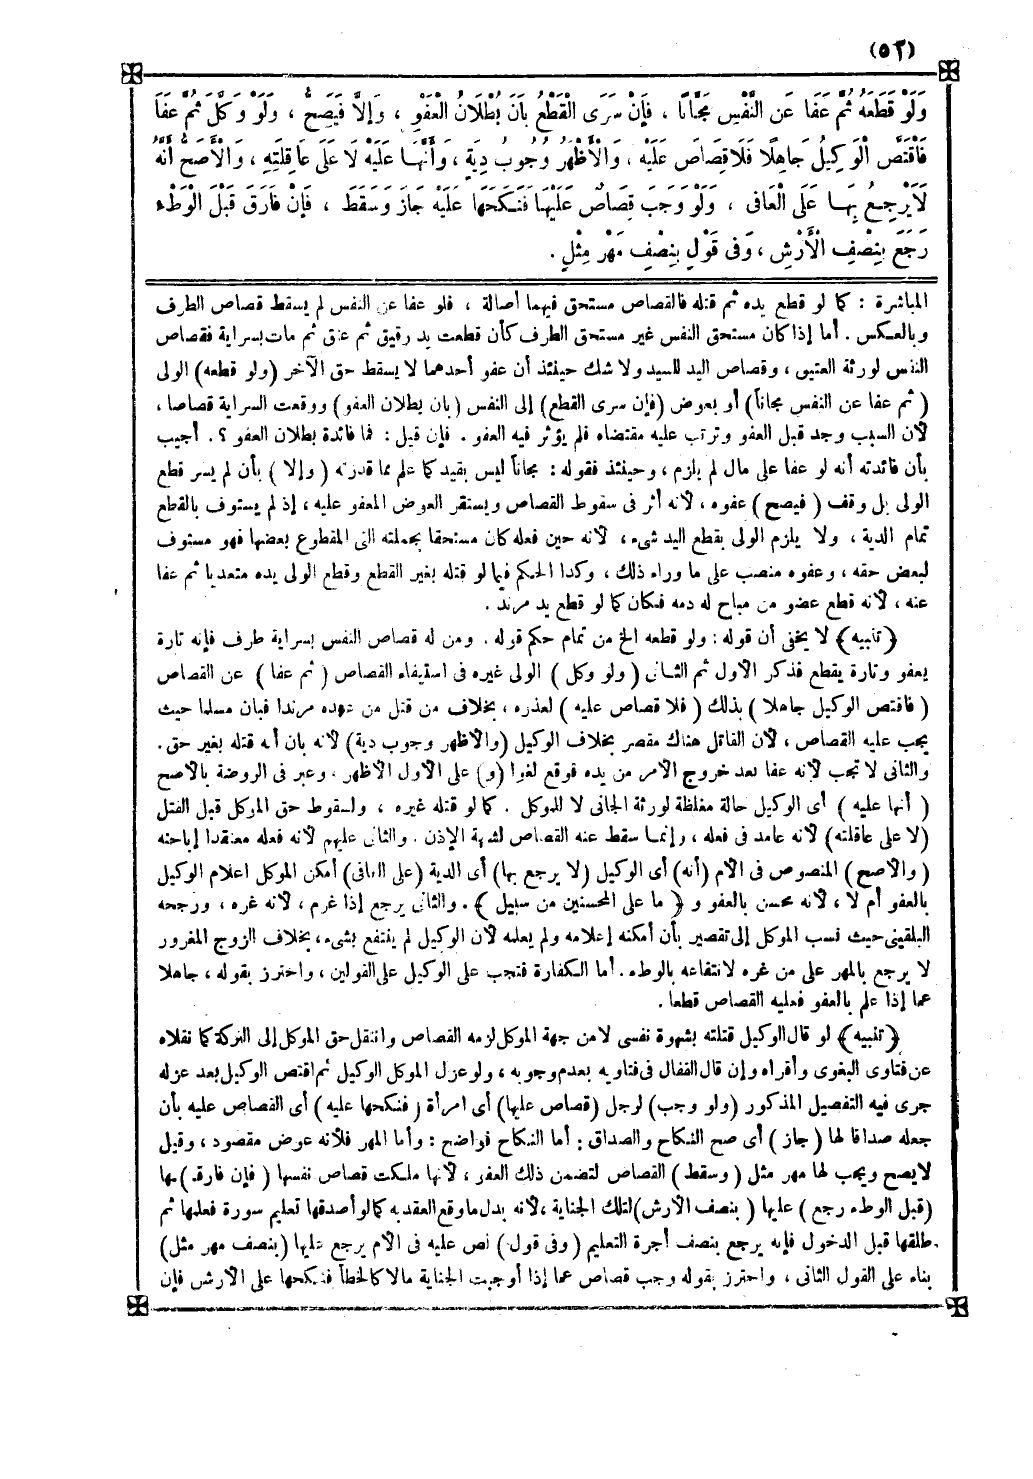 (٥٢)
وَلَوْ قَطَعَهُ ثُمَّ عَفَا عَنِ النَّفْسِ مَجَّانًا ، فَإِنْ سَرَى الْقَطْعُ بَانَ بُطْلَانُ الْعَفْوِ ، وَإِلَّا فَيَصِحُّ ، وَلَوْ وَكَّلَ ثُمَّ عَفَا
فَاقْتَصَّ الْوَكِيلُ جَاهِلًا فَلَا قِصَاصَ عَلَيْهِ ، وَالْأَظْهَرُ وُجُوبُ دِيَةٍ ، وَأَنَّهَا عَلَيْهِ لَا عَلَى عَاقِلَتِهِ ، وَالْأَصَحُّ أَنَّهُ
لَا يَرْجِعُ بِهَا عَلَى الْعَافِى ، وَلَوْ وَجَبَ قِصَاصٌ عَلَيْهَا فَنَكَحَهَا عَلَيْهِ جَازَ وَسَقَطَ ، فَإِنْ فَارَقَ قَبْلَ الْوَطْءِ
رَجَعَ بِنِصْفِ الْأَرْشِ ، وَفِى قَوْلٍ بِنِصْفِ مَهْرِ مِثْلٍ .
المباشرة : كما لو قطع يده ثم قتله فالقصاص مستحق فيهما أصالة ، فلو عفا عن النفس لم يسقط قصاص الطرف
وبالعكس . أما إذا كان مستحق النفس غير مستحق الطرف كأن قطعت يد رقيق ثم عتق ثم مات بسراية فقصاص
النفس لورثة العتيق ، وقصاص اليد للسيد ولا شك حينئذ أن عفو أحدهما لا يسقط حق الآخر (ولو قطعه) الولى
( ثم عفا عن النفس مجاناً ) أو بعوض (فإن سرى القطع) إلى النفس (بان بطلان العفو) ووقعت السراية قصاصا ،
لأن السبب وجد قبل العفو وترتب عليه مقتضاه فلم يؤثر فيه العفو . فإن قيل : فما فائدة بطلان العفو ؟ . أجيب
بأن فائدته أنه لو عفا على مال لم يلزم ، وحينئذ فقوله : مجاناً ليس بقيد كما علم مما قدرته ( وإلا ) بأن لم يسر قطع
الولى بل وقف ( فيصح ) عفوه ، لأنه أثر فى سقوط القصاص ويستقر العوض المعفو عليه ، إذ لم يستوف بالقطع
تمام الدية ، ولا يلزم الولى بقطع اليد شىء ، لأنه حين فعله كان مستحقا بجملته التى المقطوع بعضها فهو مستوف
لبعض حقه ، وعفوه منصب على ما وراء ذلك ، وكذا الحكم فيما لو قتله بغير القطع وقطع الولى يده متعديا ثم عفا
عنه ، لأنه قطع عضو من مباح له دمه فكان كما لو قطع يد مرتد .
﴿تنبيه﴾ لا يخفى أن قوله : ولو قطعه الخ من تمام حكم قوله . ومن له قصاص النفس بسراية طرف فإنه تارة
يعفو وتارة يقطع فذكر الأول ثم الثانى ( ولو وكل ) الولى غيره فى استيفاء القصاص ( ثم عفا ) عن القصاص
( فاقتص الوكيل جاهلا ) بذلك ( فلا قصاص عليه ) لعذره ، بخلاف من قتل من عهده مرتدا فبان مسلما حيث
يجب عليه القصاص ، لأن القاتل هناك مقصر بخلاف الوكيل (والأظهر وجوب دية) لأنه بان أنه قتله بغير حق .
والثانى لا تجب لأنه عفا بعد خروج الأمر من يده فوقع لغوا (و) على الأول الأظهر . وعبر فى الروضة بالأصح
( أنها عليه ) أى الوكيل حالة مغلظة لورثة الجانى لا للموكل . كما لو قتله غيره ، ولسقوط حق الموكل قبل القتل
(لا على عاقلته) لأنه عامد فى فعله ، وإنما سقط عنه القصاص لشبهة الإذن . والثانى عليهم لأنه فعله معتقدا إباحته
( والأصح ) المنصوص فى الأم (أنه) أى الوكيل (لا يرجع بها) أى الدية (على العافى) أمكن الموكل اعلام الوكيل
بالعفو أم لا ، لأنه محسن بالعفو و ﴿ ما على المحسنين من سبيل ﴾ . والثانى يرجع إذا غرم ، لأنه غره ، ورجحه
البلقينى حيث نسب الموكل إلى تقصير بأن أمكنه إعلامه ولم يعلمه لأن الوكيل لم ينتفع بشىء ، بخلاف الزوج المغرور
لا يرجع بالمهر على من غره لانتفاعه بالوطء . أما الكفارة فتجب على الوكيل على القولين ، واحترز بقوله ، جاهلا
عما إذا علم بالعفو فعليه القصاص قطعا .
﴿تنبيه﴾ لو قال الوكيل قتلته بشهوة نفسى لا من جهة الموكل لزمه القصاص وانتقل حق الموكل إلى التركة كما نقلاه
عن فتاوى البغوى وأقراه وإن قال القفال فى فتاويه بعدم وجوبه ، ولو عزل الموكل الوكيل ثم اقتص الوكيل بعد عزله
جرى فيه التفصيل المذكور (ولو وجب) لرجل (قصاص عليها) أى امرأة ( فنكحها عليه ) أى القصاص عليه بأن
جعله صداقا لها ( جاز ) أى صح النكاح والصداق : أما النكاح فواضح : وأما المهر فلأنه عوض مقصود ، وقيل
لا يصح ويجب لها مهر مثل ( وسقط ) القصاص لتضمن ذلك العفو ، لأنها ملكت قصاص نفسها ( فإن فارق ) ها
(قبل الوطء رجع ) عليها ( بنصف الأرش) لتلك الجناية ، لأنه بدل ما وقع العقد به كما لو أصدقها تعليم سورة فعلمها ثم
طلقها قبل الدخول فإنه يرجع بنصف أجرة التعليم (وفى قول) نص عليه فى الأم يرجع عليها (بنصف مهر مثل)
بناء على القول الثانى ، واحترز بقوله وجب قصاص عما إذا أوجبت الجناية مالا كالخطأ فنكحها على الأرش فإن